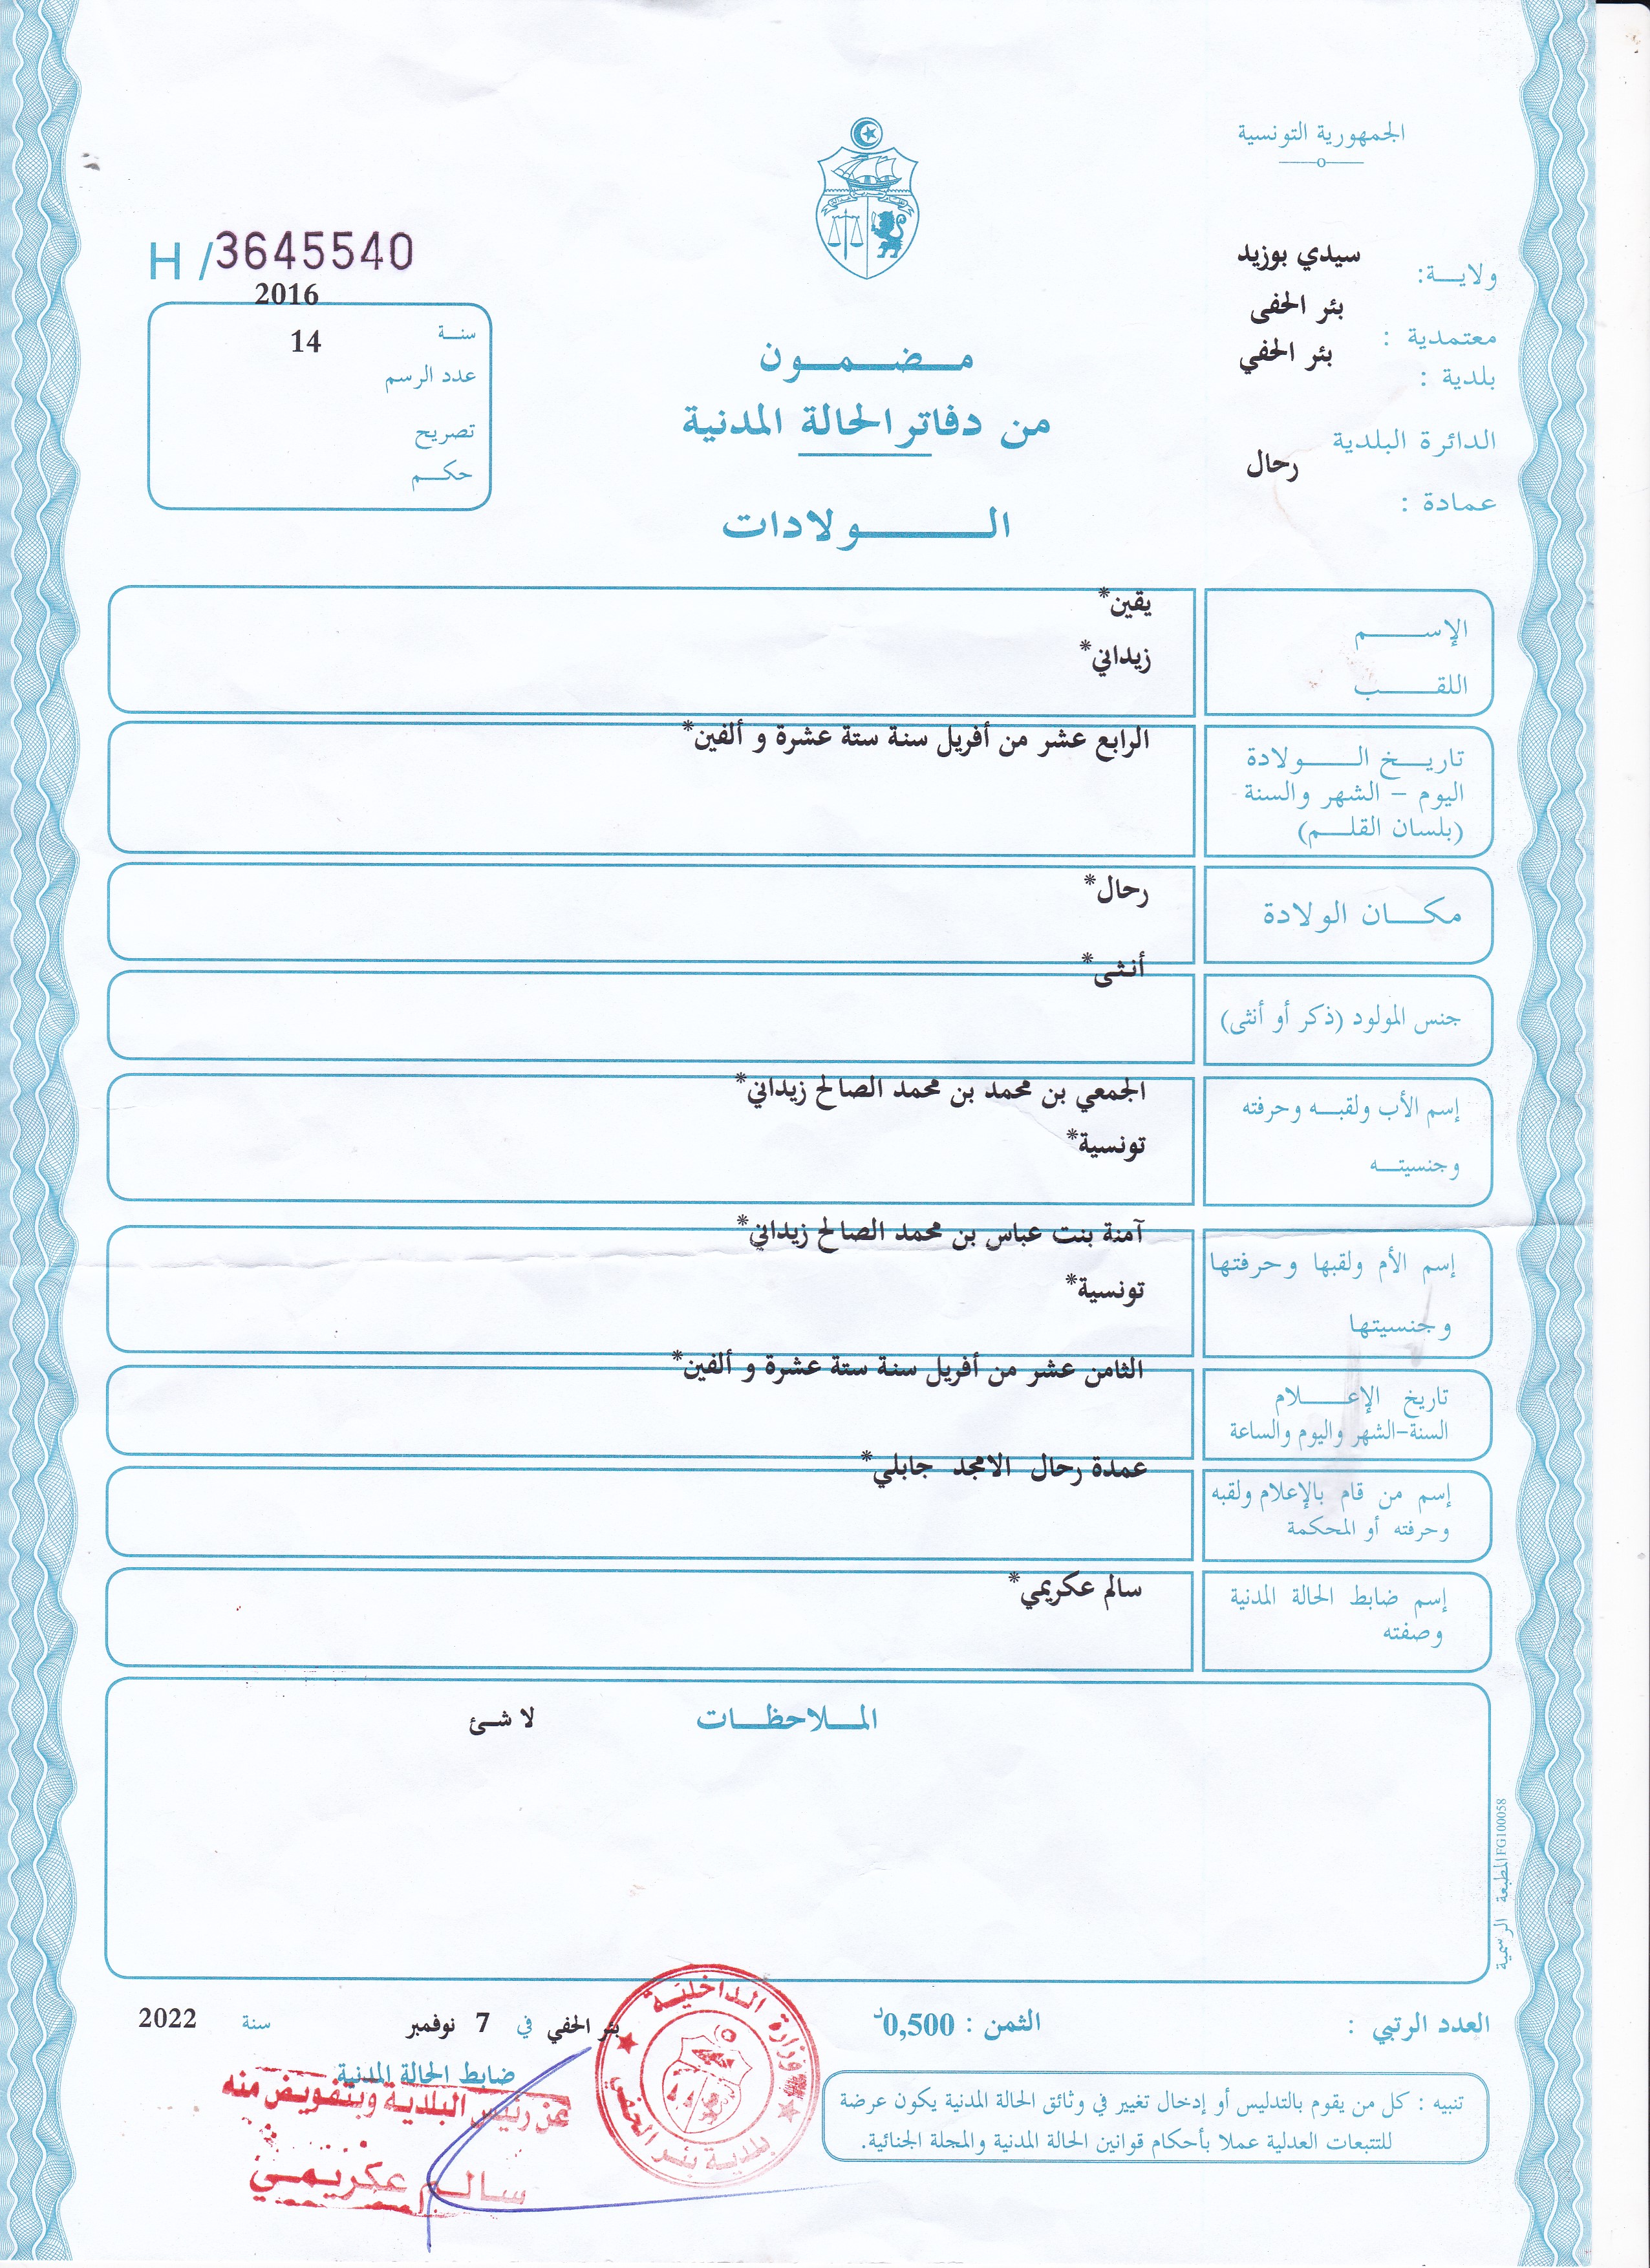 الجمهورية التونسية
ولايـــة: سيدي بوزيد
معتمدية : بئر الحفى
بلدية : بئر الحفي
الدائرة البلدية
رحال
عمادة :
H / 3645540
2016
سنــة
14
عدد الرسم
تصريح
حكــم
مــضــمــون
من دفاتر الحالة المدنية
الــــولادات
الإســـــم
يقين*
اللقـــــب
زيداني*
تاريـــخ الــــولادة
اليوم - الشهر والسنة
(بلسان القلــم)
الرابع عشر من أفريل سنة ستة عشرة و ألفين*
مكـــان الولادة
رحال*
جنس المولود (ذكر أو أنثى)
أنثى*
إسم الأب ولقبــه وحرفته
وجنسيتــه
الجمعي بن محمد بن محمد الصالح زيداني*
تونسية*
إسم الأم ولقبها وحرفتها
وجنسيتها
آمنة بنت عباس بن محمد الصالح زيداني*
تونسية*
تاريخ الإعـــــلام
السنة-الشهر واليوم والساعة
الثامن عشر من أفريل سنة ستة عشرة و ألفين*
إسم من قام بالإعلام ولقبه
وحرفته أو المحكمة
عمدة رحال الامجد جابلي*
إسم ضابط الحالة المدنية
وصفته
سالم عكريمي*
المــلاحظــات
لا شئ
المطبعة الرسمية FG100058
العدد الرتبي :
الثمن : 0,500د
بئر الحفي في 7 نوفمبر سنة 2022
ضابط الحالة المدنية
عن رئيس البلدية وبتفويض منه
سالم عكريمي
وزارة الداخلية
بلدية بئر الحفي
تنبيه : كل من يقوم بالتدليس أو إدخال تغيير في وثائق الحالة المدنية يكون عرضة
للتتبعات العدلية عملا بأحكام قوانين الحالة المدنية والمجلة الجنائية.